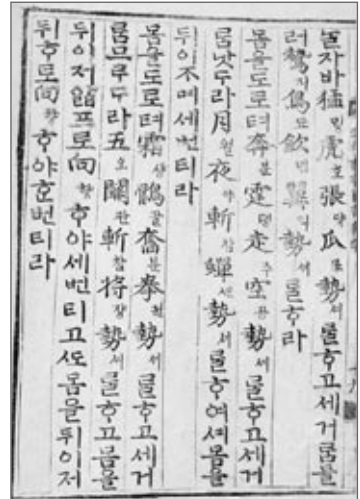 늘자바猛밍虎호張댱爪조勢셰를ᄒᆞ고세거름믈
러鷙지鳥됴歛렴翼익勢셰를ᄒᆞ라
몸을도로텨奔분霆뎡走주空공勢셰를ᄒᆞ고세거
름낫드라月월夜야斬참蟬션勢셰를ᄒᆞ여셔몸을
뒤이조며세번티라
몸을도로텨霜상鶻골奮분拳권勢셰를ᄒᆞ고세거
름므르드라五오關관斬참將쟝勢셰를ᄒᆞ고몸을
뒤이저앏프로向향ᄒᆞ야세번티고ᄯᅩ몸을뒤이저
뒤후로向향ᄒᆞ야ᄒᆞᆫ번티라